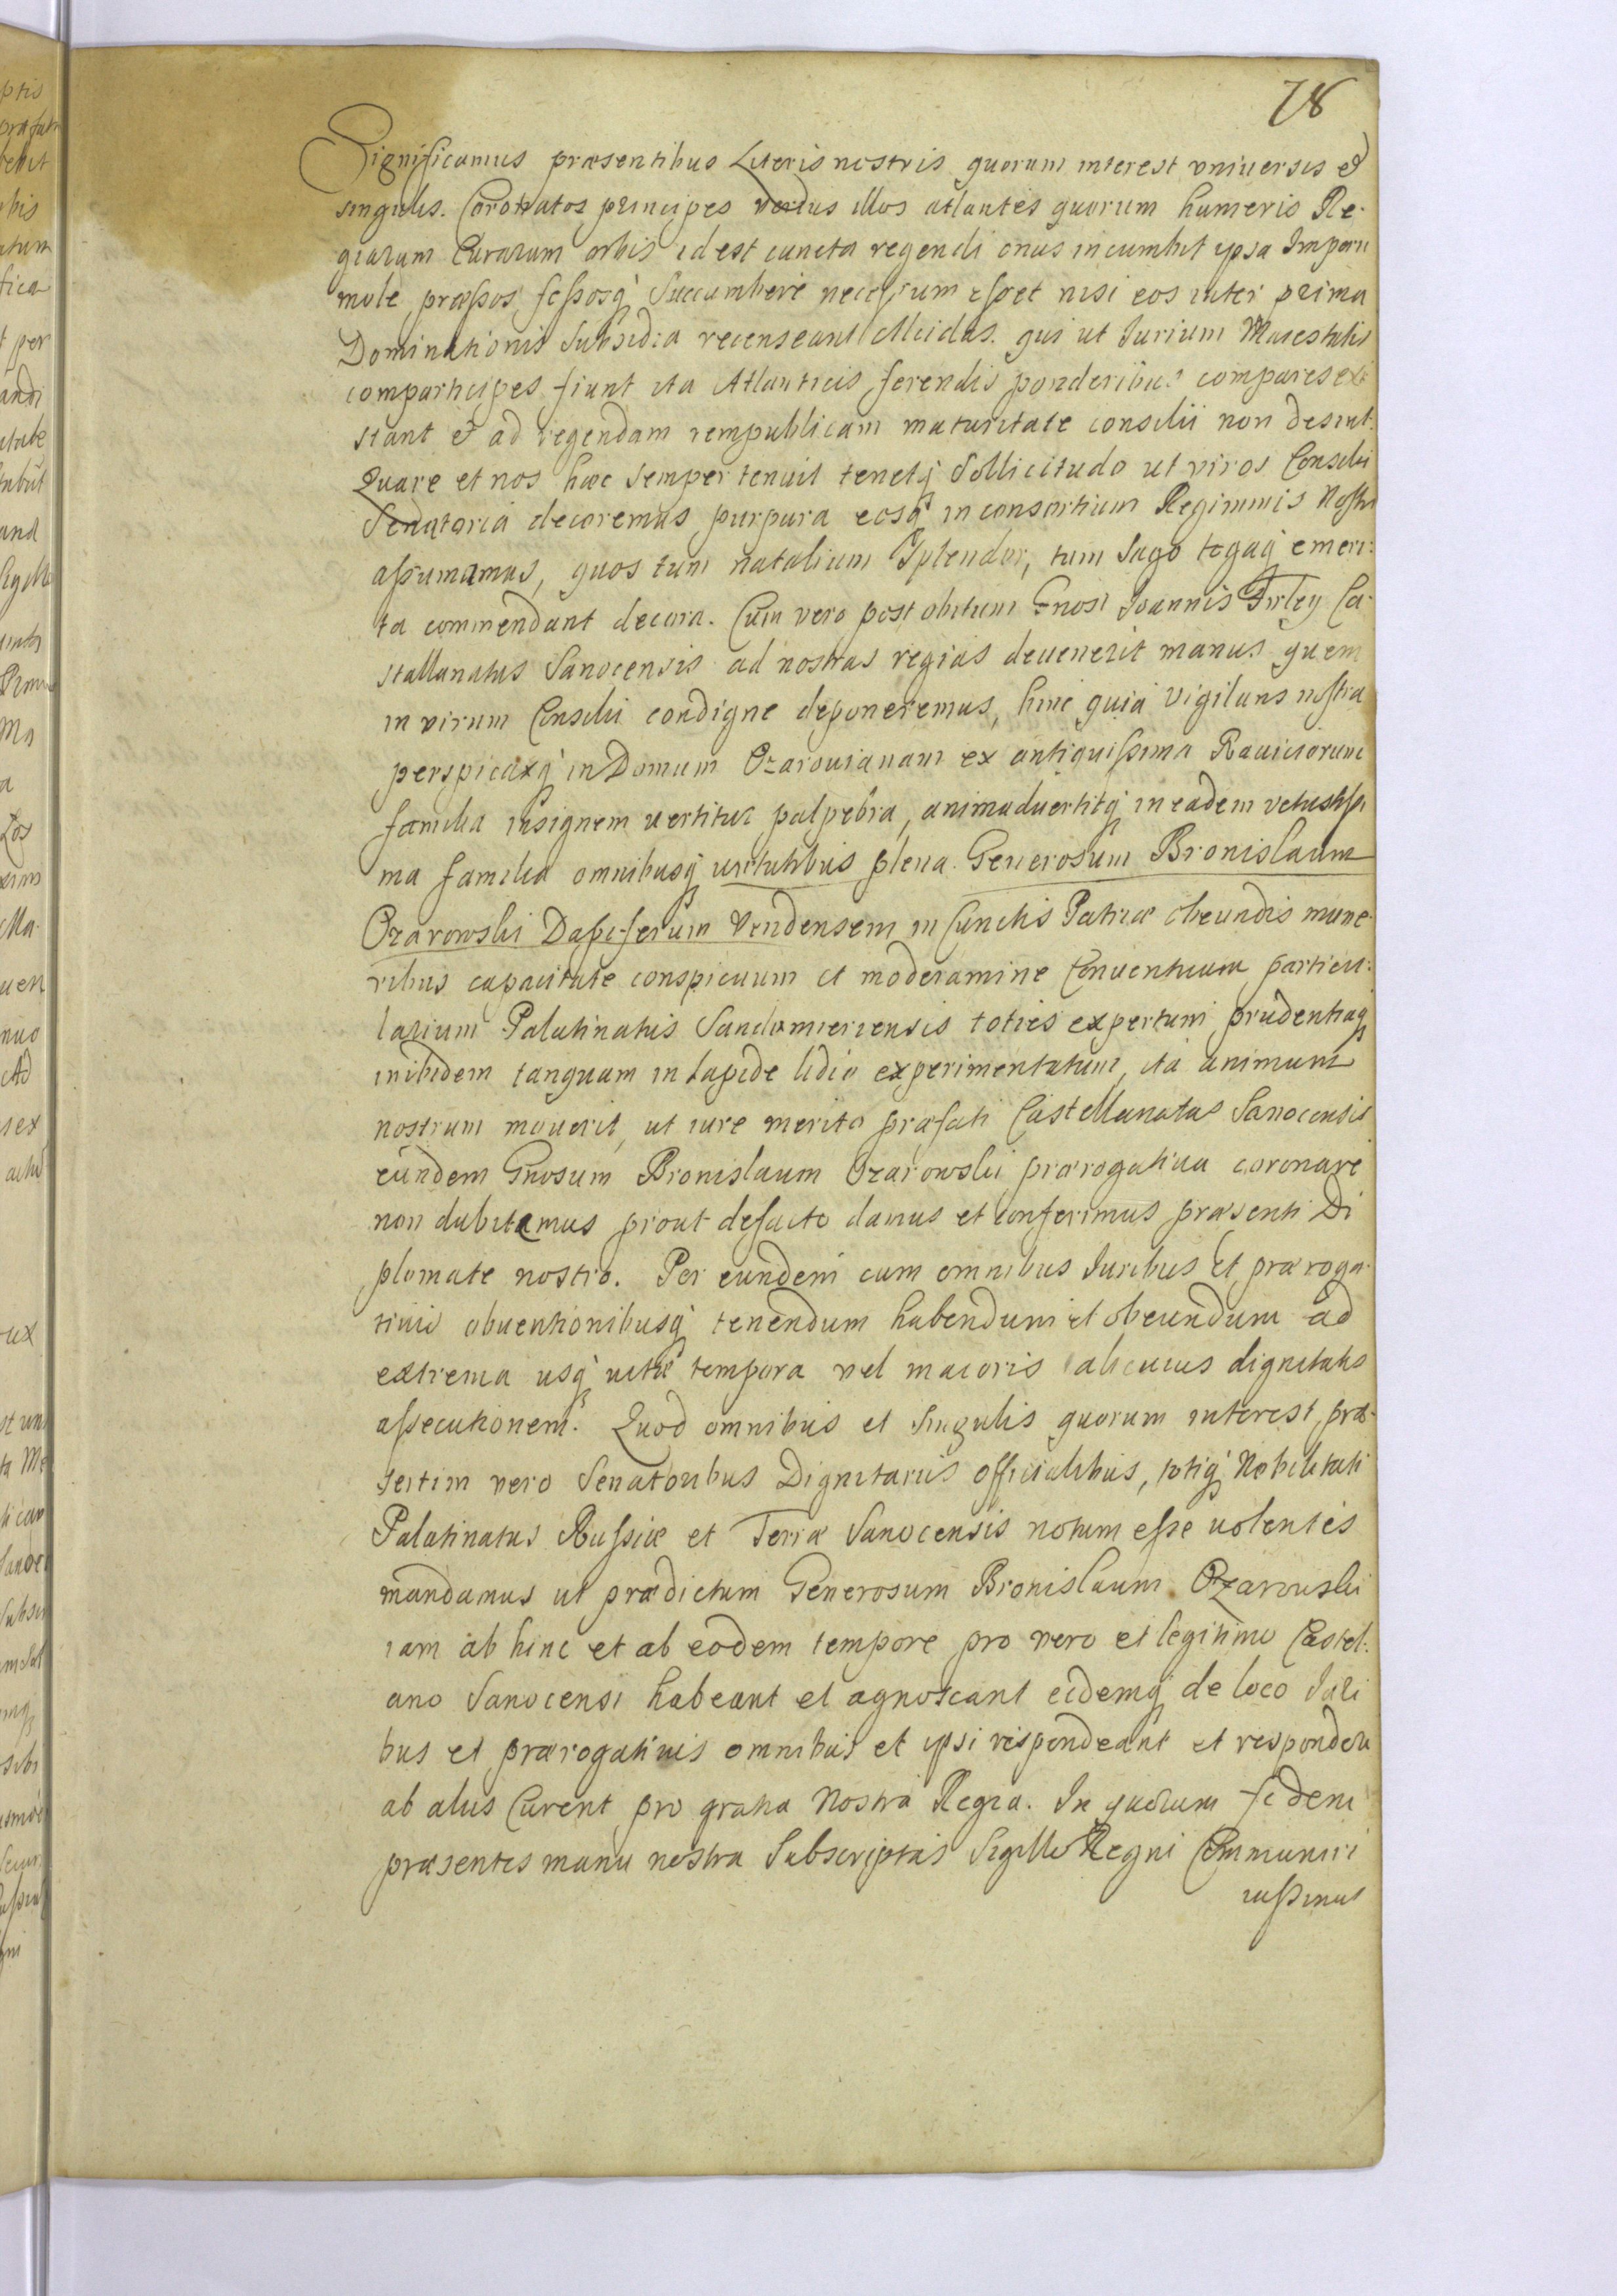 78
Significamus præsentibus Literis nostris quorum interest vniuersis et
singulis. Coronatos principes verius illos atlantes quorum humeris Re-
giarum Curarum orbis id est cuncta regendi onus incumbit ipsa Imperii
mole præssos fessosq̃ succumbere necessum esset nisi eos inter prima
Dominationis Subsidia recenseant Alcidas. qui ut Iurium Maiestatis
comparticipes fiunt ita Atlanticis ferendis ponderibus compares exi
stant et ad regendam rempublicam maturitate consilii non desint.
Quare et nos hæc semper tenuit tenetq̃ Sollicitudo ut viros Consilii
Senatoria decoremus purpura eosq̃ in consortium Regiminis Nostri
assumamus, quos tum natalium Splendor, tum Sago togaq̃ emeri:
ta commendant decora. Cum vero post obitum Gnosi Ioannis Firley Ca-
stallanatus Sanocensis ad nostras regias deuenerit manus quem
in virum Consilii condigne deponeremus, hinc quia vigilans nostra
perspicaxq̃ in Domum Ozarouianam ex antiquissima Rauiciorum
familia insignem uertitur palpebra, animaduertitq̃ in eadem vetustissi
ma familia omnibusq̃ uirtutibus plena Generosum Bronislaum
Ozarowski Dapiferum Vendensem in Cunctis Patriæ obeundis mune-
ribus capacitate conspicuum et moderamine Conuentuum particu:
larium Palatinatus Sandomiriensis toties expertum prudentiaq̃
inibidem tanquam in lapide lidio experimentatum, ita animum
nostrum mouerit, ut iure merito præfati Castellanatus Sanocensis
eundem Gnosum Bronislaum Ozarowski prærogatiua coronare
non dubitamus prout defacto damus et conferimus præsenti Di
plomate nostro. Per eundem cum omnibus Iuribus et præroga-
tiuis obuentionibusq̃ tenendum habendum et obeundum ad
extrema usq̃ uitæ tempora vel maioris alicuius dignitatis
assecutionem. Quod omnibus et singulis quorum interest, præ-
sertim vero Senatoribus Dignitariis officialibus, totiq̃ Nobilitati
Palatinatus Russiæ et Terræ Sanocensis notum esse uolentes
mandamus ut prædictum Generosum Bronislaum Ozarouski
iam ab hinc et ab eodem tempore pro vero et legitimo Castel:
ano Sanocensi habeant et agnoscant eidemq̃ de loco Iuri
bus et prærogatiuis omnibus et ipsi respondeant et responderi
ab aliis Curent pro gratia Nostra Regia. In quorum fidem
præsentes manu nostra Subscriptas Sigillo Regni Communiri
iussimus